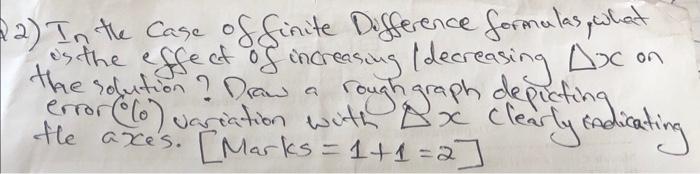 Q2) In the case of finite Difference formulas, what
is the effect of increasing / decreasing Δx on
the solution? Draw a rough graph depicting
error (%) variation with Δx clearly indicating
the axes. [Marks = 1+1 = 2]